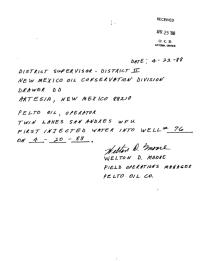 RECEIVED
APR 25 '88
O. C. D.
ARTESIA, OFFICE
DATE: 4-22-88
DISTRICT SUPERVISOR - DISTRICT II
NEW MEXICO OIL CONSERVATION DIVISION
DRAWER DD
ARTESIA, NEW MEXICO 88210
PELTO OIL, OPERATOR
TWIN LAKES SAN ANDRES UNIT
FIRST INJECTED WATER INTO WELL # 76
ON 4-20-88.
Welton D. Moore
WELTON D. MOORE
FIELD OPERATIONS MANAGER
PELTO OIL CO.